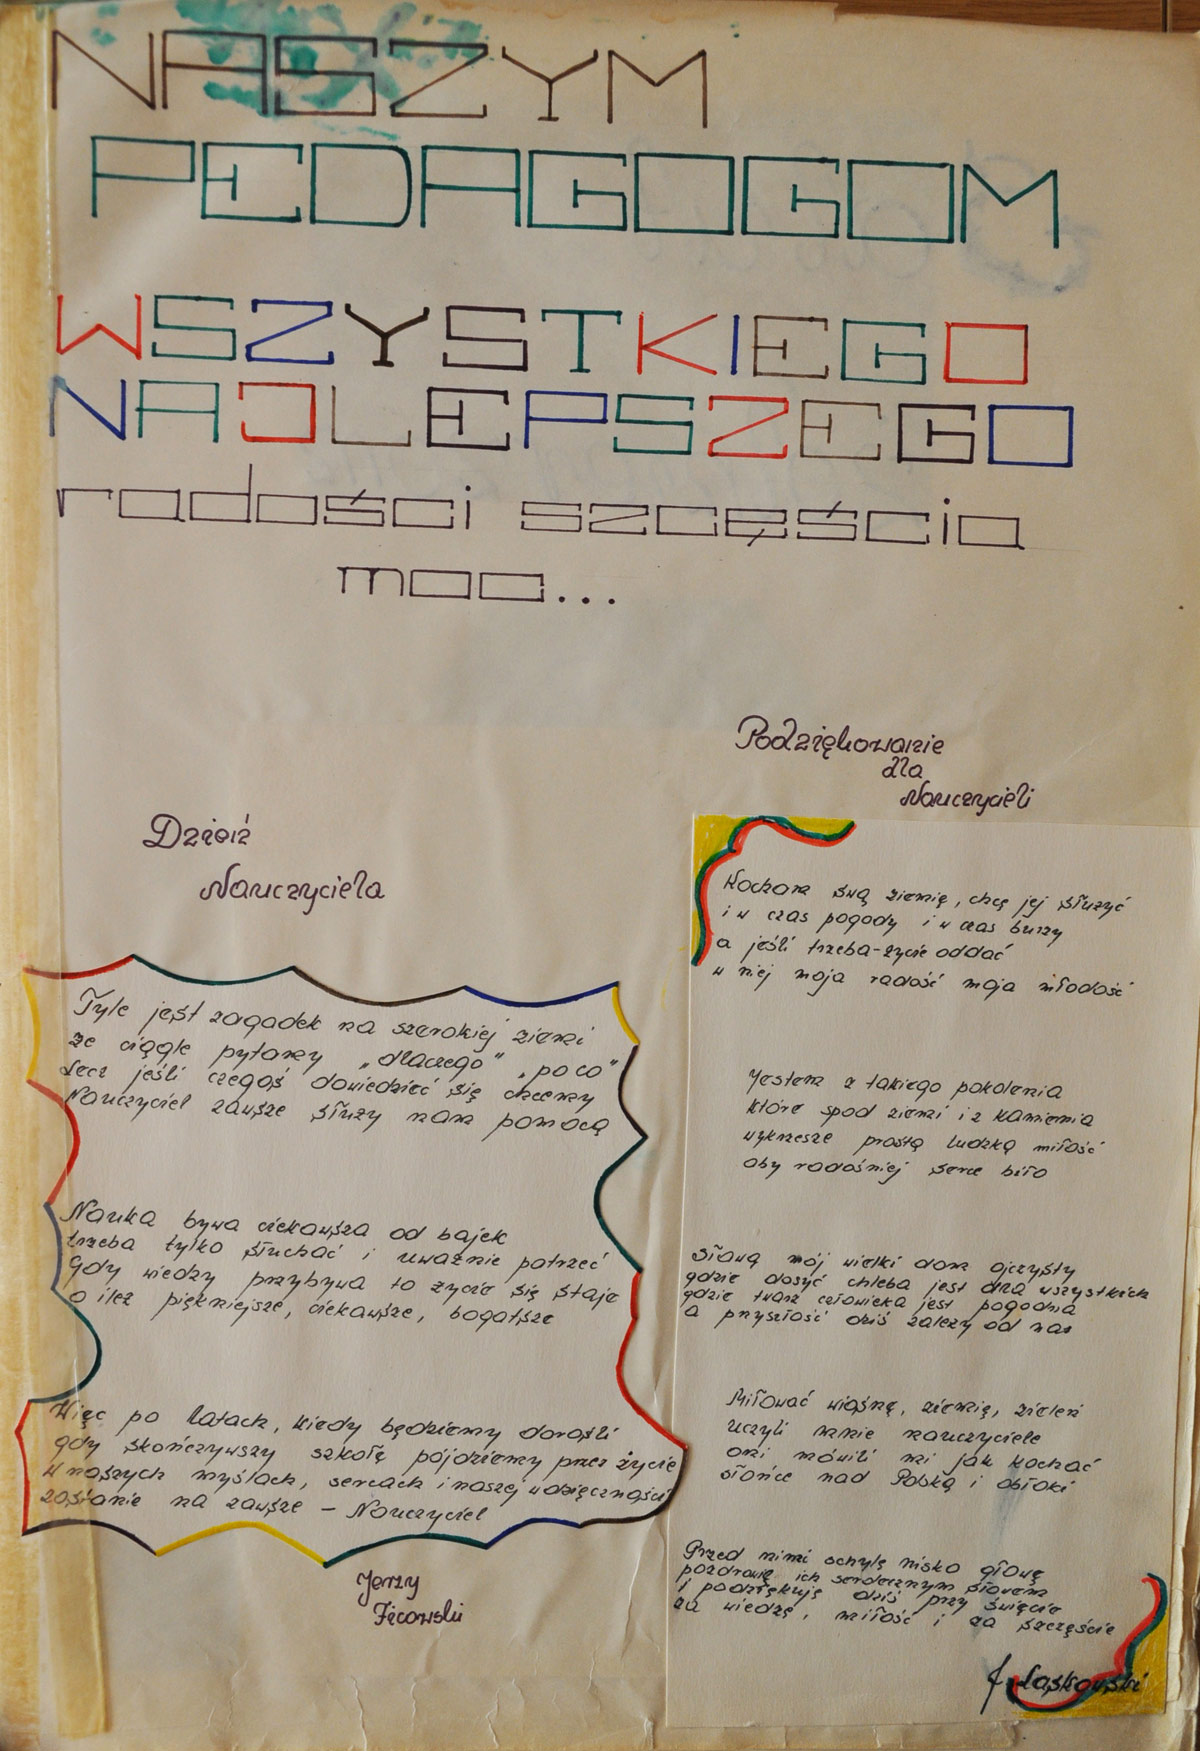 NASZYM
PEDAGOGOM
WSZYSTKIEGO
NAJLEPSZEGO
radości szczęścia
moc...
Dzień
Nauczyciela
Tyle jest zagadek na szerokiej ziemi
że ciągle pytamy „dlaczego” „po co”
Lecz jeśli czegoś dowiedzieć się chcemy
Nauczyciel zawsze służy nam pomocą
Nauka bywa ciekawsza od bajek
trzeba tylko słuchać i uważnie patrzeć
gdy wiedzy przybywa to życie się staje
o ileż piękniejsze, ciekawsze, bogatsze
Więc po latach, kiedy będziemy dorośli
gdy skończywszy szkołę pójdziemy przez życie
w naszych myślach, sercach i naszej wdzięczności
zostanie na zawsze - Nauczyciel
Jerzy
Ficowski
Podziękowanie
dla
Nauczycieli
Kocham swą ziemię, chcę jej służyć
i w czas pogody i w czas burzy
a jeśli trzeba-życie oddać
w niej moja radość moja młodość
Jestem z takiego pokolenia
które spod ziemi i z kamienia
wykrzesze prostą ludzką miłość
aby radośniej serce biło
Sławą mój wielki dom ojczysty
gdzie dosyć chleba jest dla wszystkich
gdzie twarz człowieka jest pogodna
a przyszłość dziś zależy od nas
Miłować wiosnę, ziemię, zieleń
uczyli mnie nauczyciele
oni mówili mi jak kochać
słońce nad Polską i obłoki
Przed nimi schylę nisko głowę
pozdrowię ich serdecznym słowem
i podziękuję dziś przy święcie
za wiedzę, miłość i za szczęście
J. Laskowski